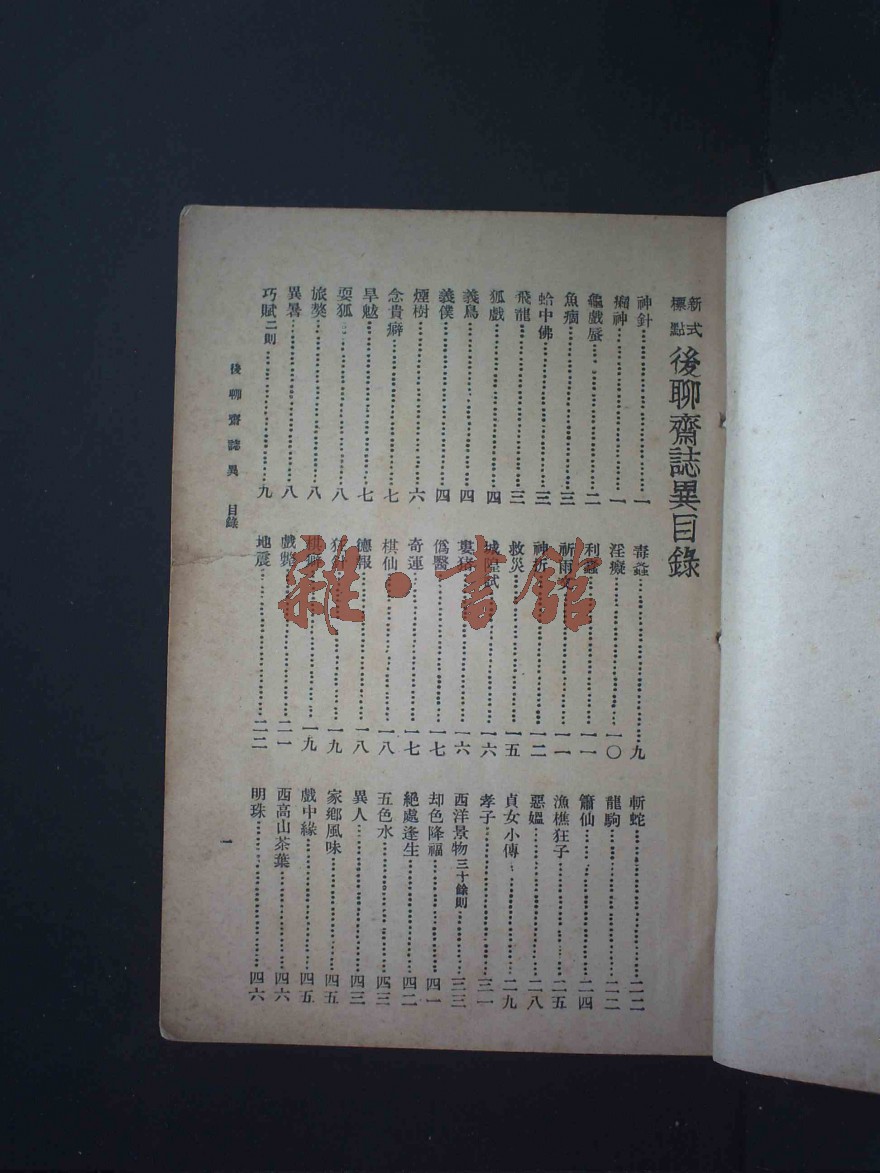 新式標點 後聊齋誌異目錄
神針……一
神……一
龜戲蜃……二
魚……三
蛤中佛……三
飛龍……三
狐戲……四
義鳥……四
義僕……四
煙樹……六
念貴癖……七
旱魃……七
耍狐……八
旅獒……八
異暑……八
巧賦二則……九
毒蠱……九
淫癡……一〇
利蠱……一一
祈雨文……一一
神……一二
救災……一五
城隍試……一六
……一六
僞醫……一七
奇運……一七
棋仙……一八
德報……一八
針……一九
棋癖……一九
戲……二一
地震……二二
斬蛇……二二
龍駒……二二
簫仙……二四
漁樵狂子……二五
惡媼……二八
貞女小傳……二九
孝子……三一
西洋景物三十餘則……三三
却色降福……四一
絕處逢生……四二
五色水……四三
異人……四三
家鄉風味……四五
戲中緣……四五
西高山茶葉……四六
明珠……四六
後聊齋誌異 目錄 一
雜·書館